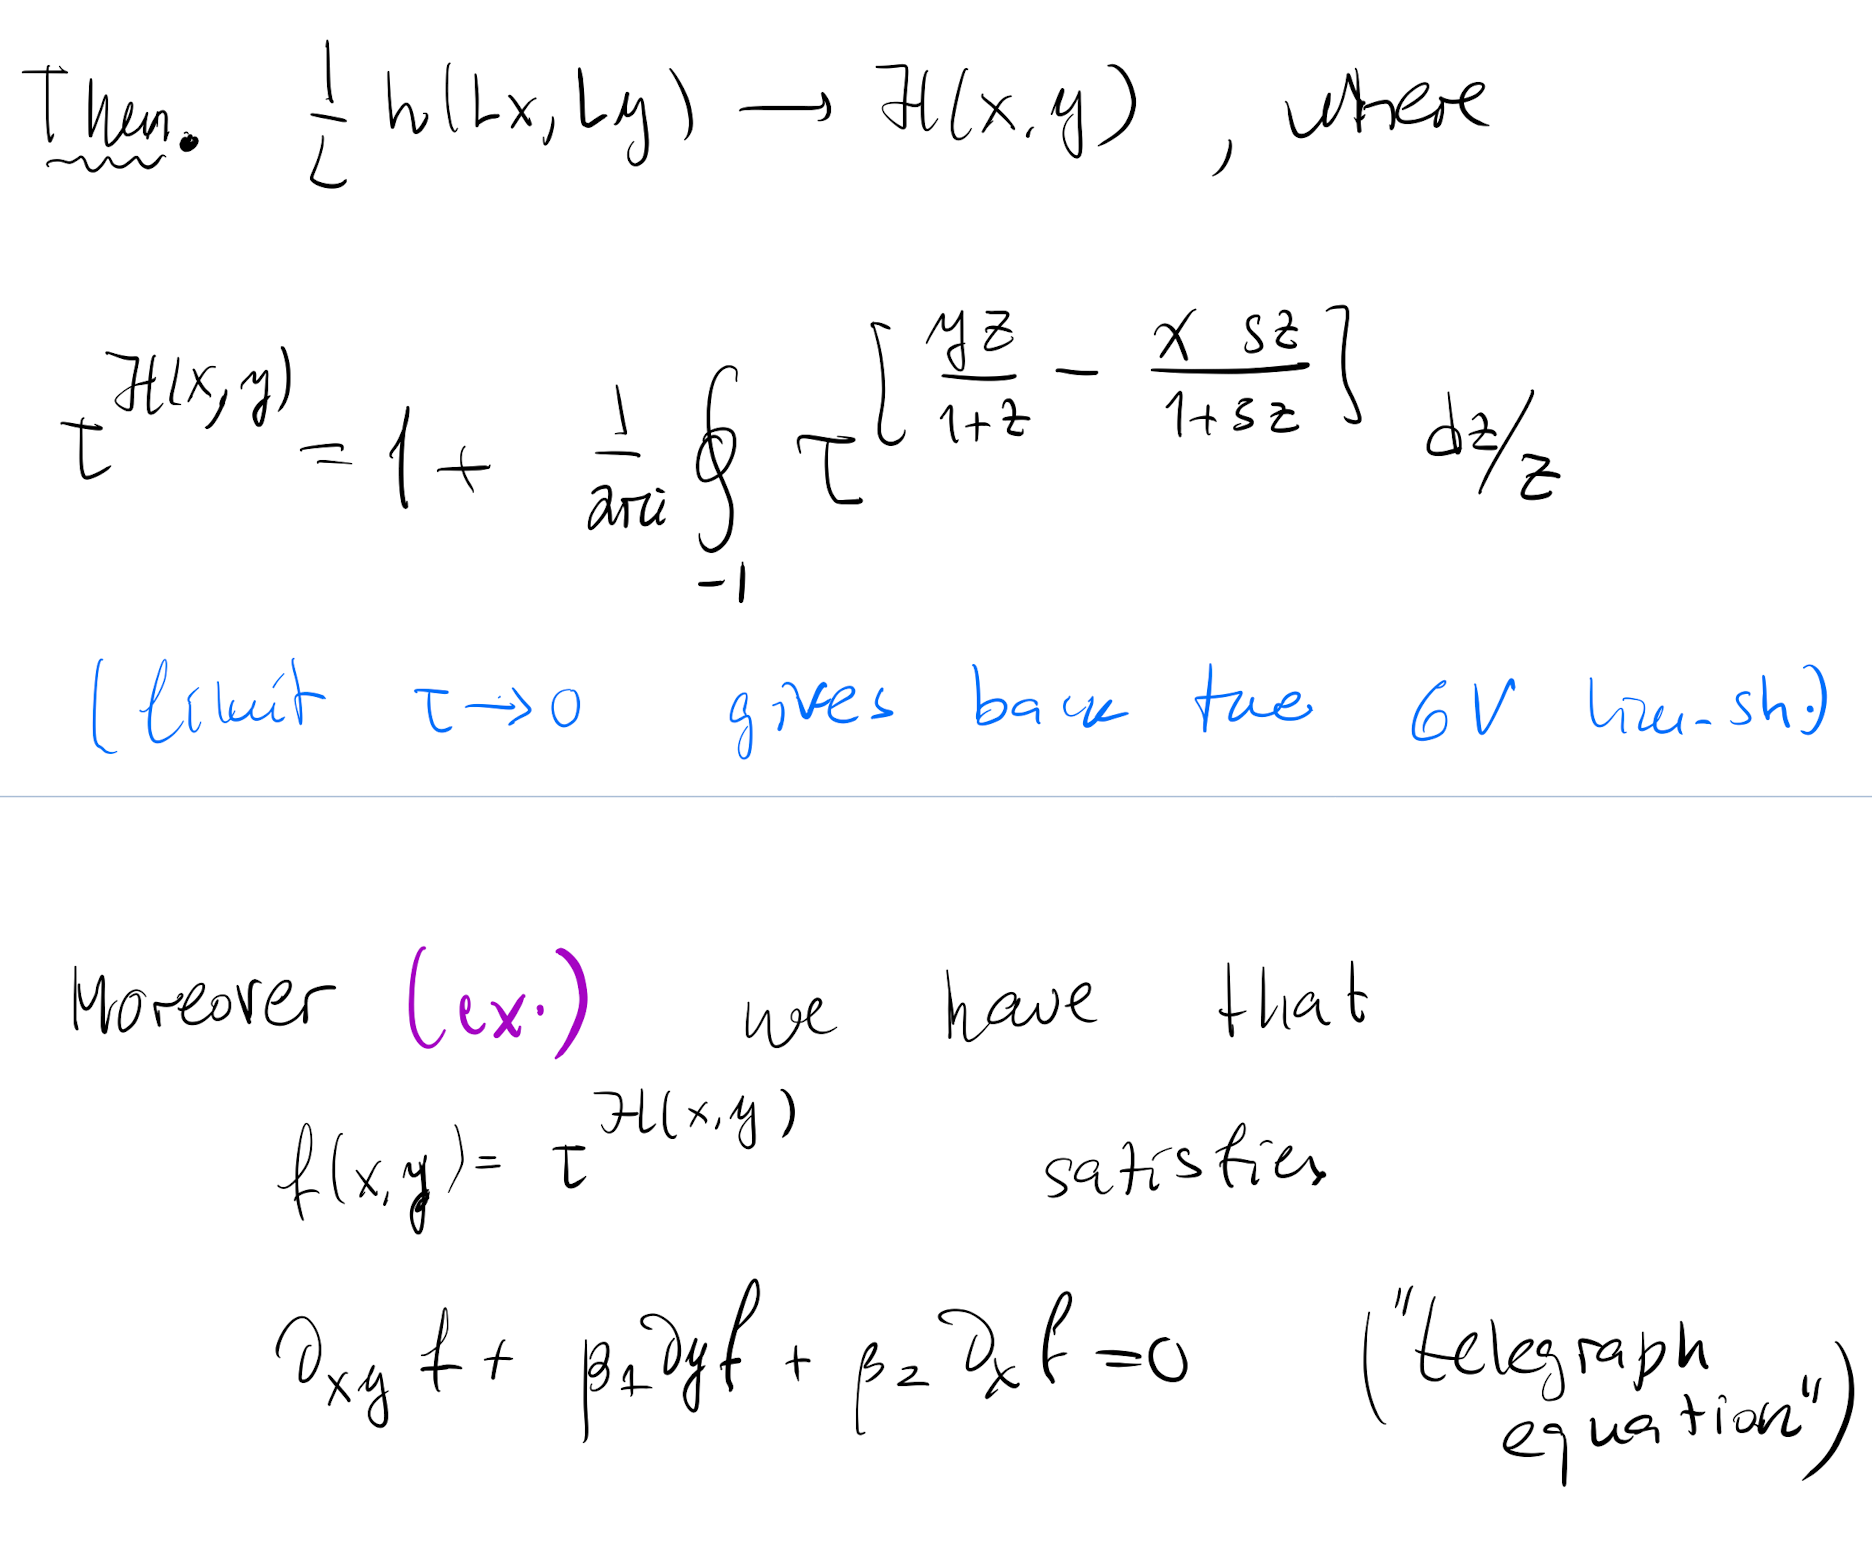 Thm. 1/L h(Lx, Ly) → ℋ(x,y) , where
τ^{ℋ(x,y)} = 1 + 1/2πi ∮_{-1} τ^{[yz/(1+z) - x sz/(1+sz)]} dz/z
(limit τ→0 gives back the 6V lim-sh.)
Moreover (ex.) we have that
f(x,y) = τ^{ℋ(x,y)} satisfies
∂_{xy} f + β_1 ∂_y f + β_2 ∂_x f = 0 ("telegraph
equation")